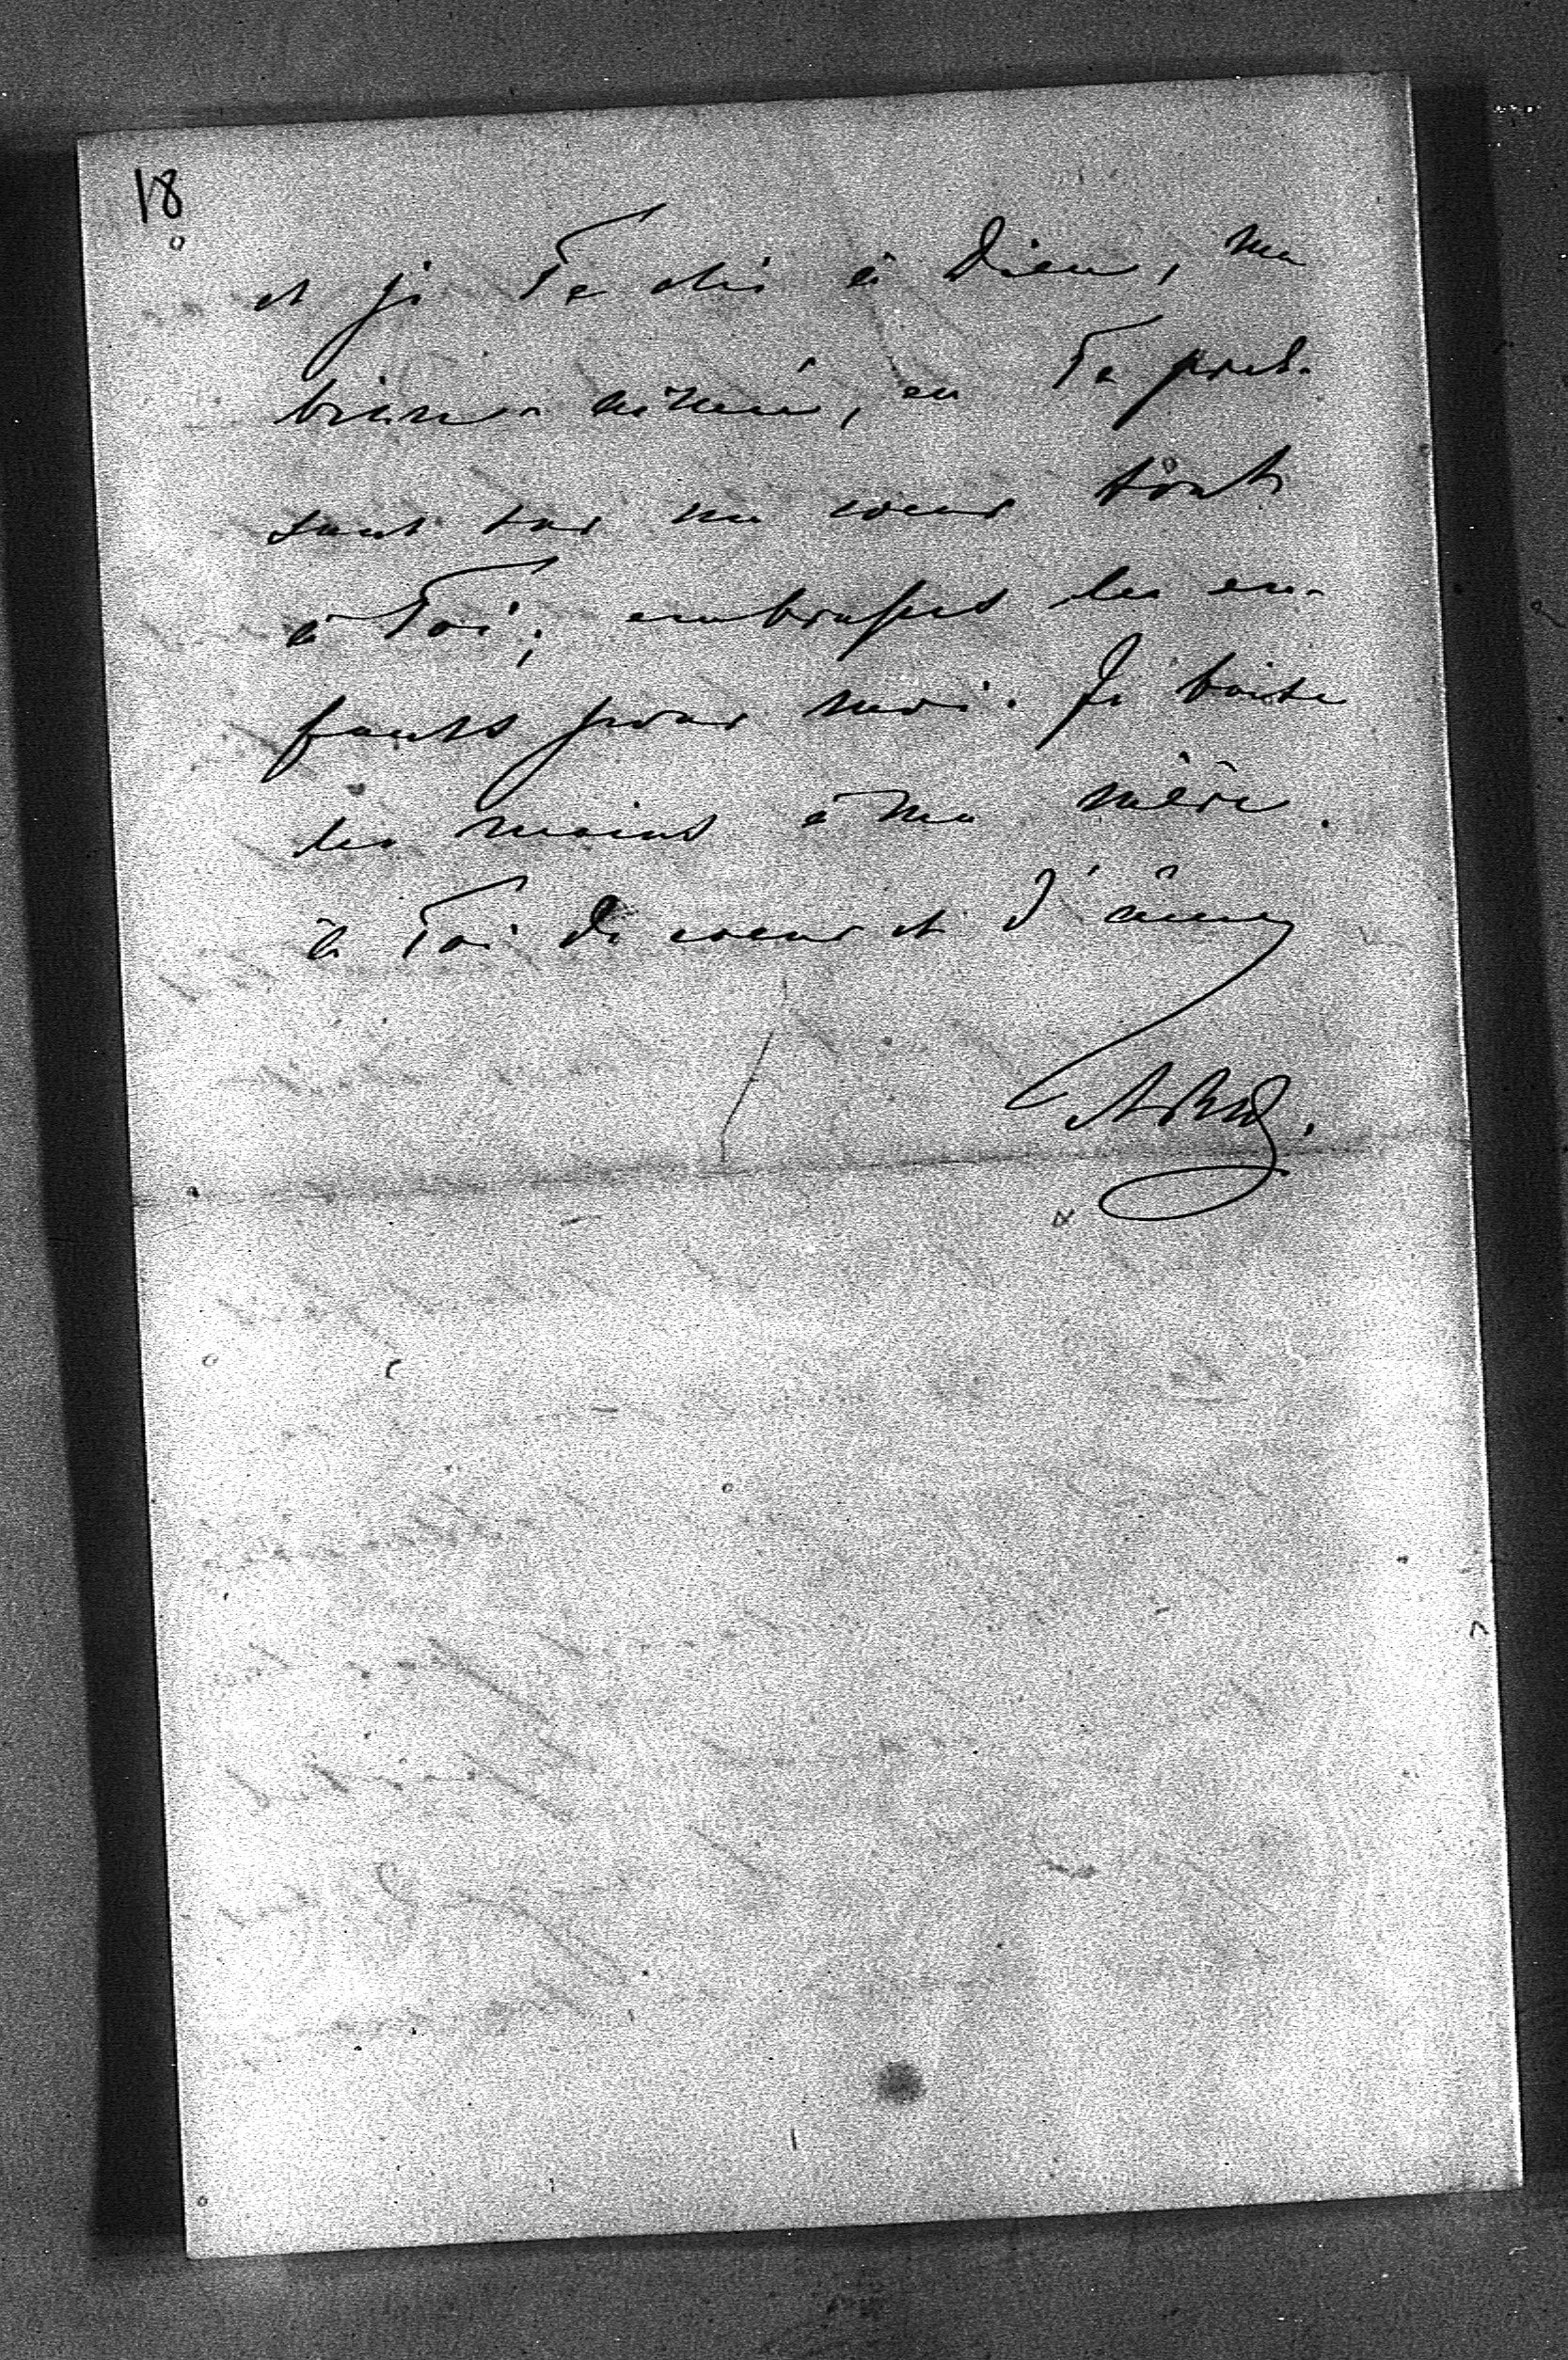 18
et je Te dis à Dieu, ma
bien-aimée, en Te pres-
sant sur un coeur tout
à Toi; embrasses les en-
fants pour moi. Je baise
les mains à ma mère.
à Toi de coeur et d'âme